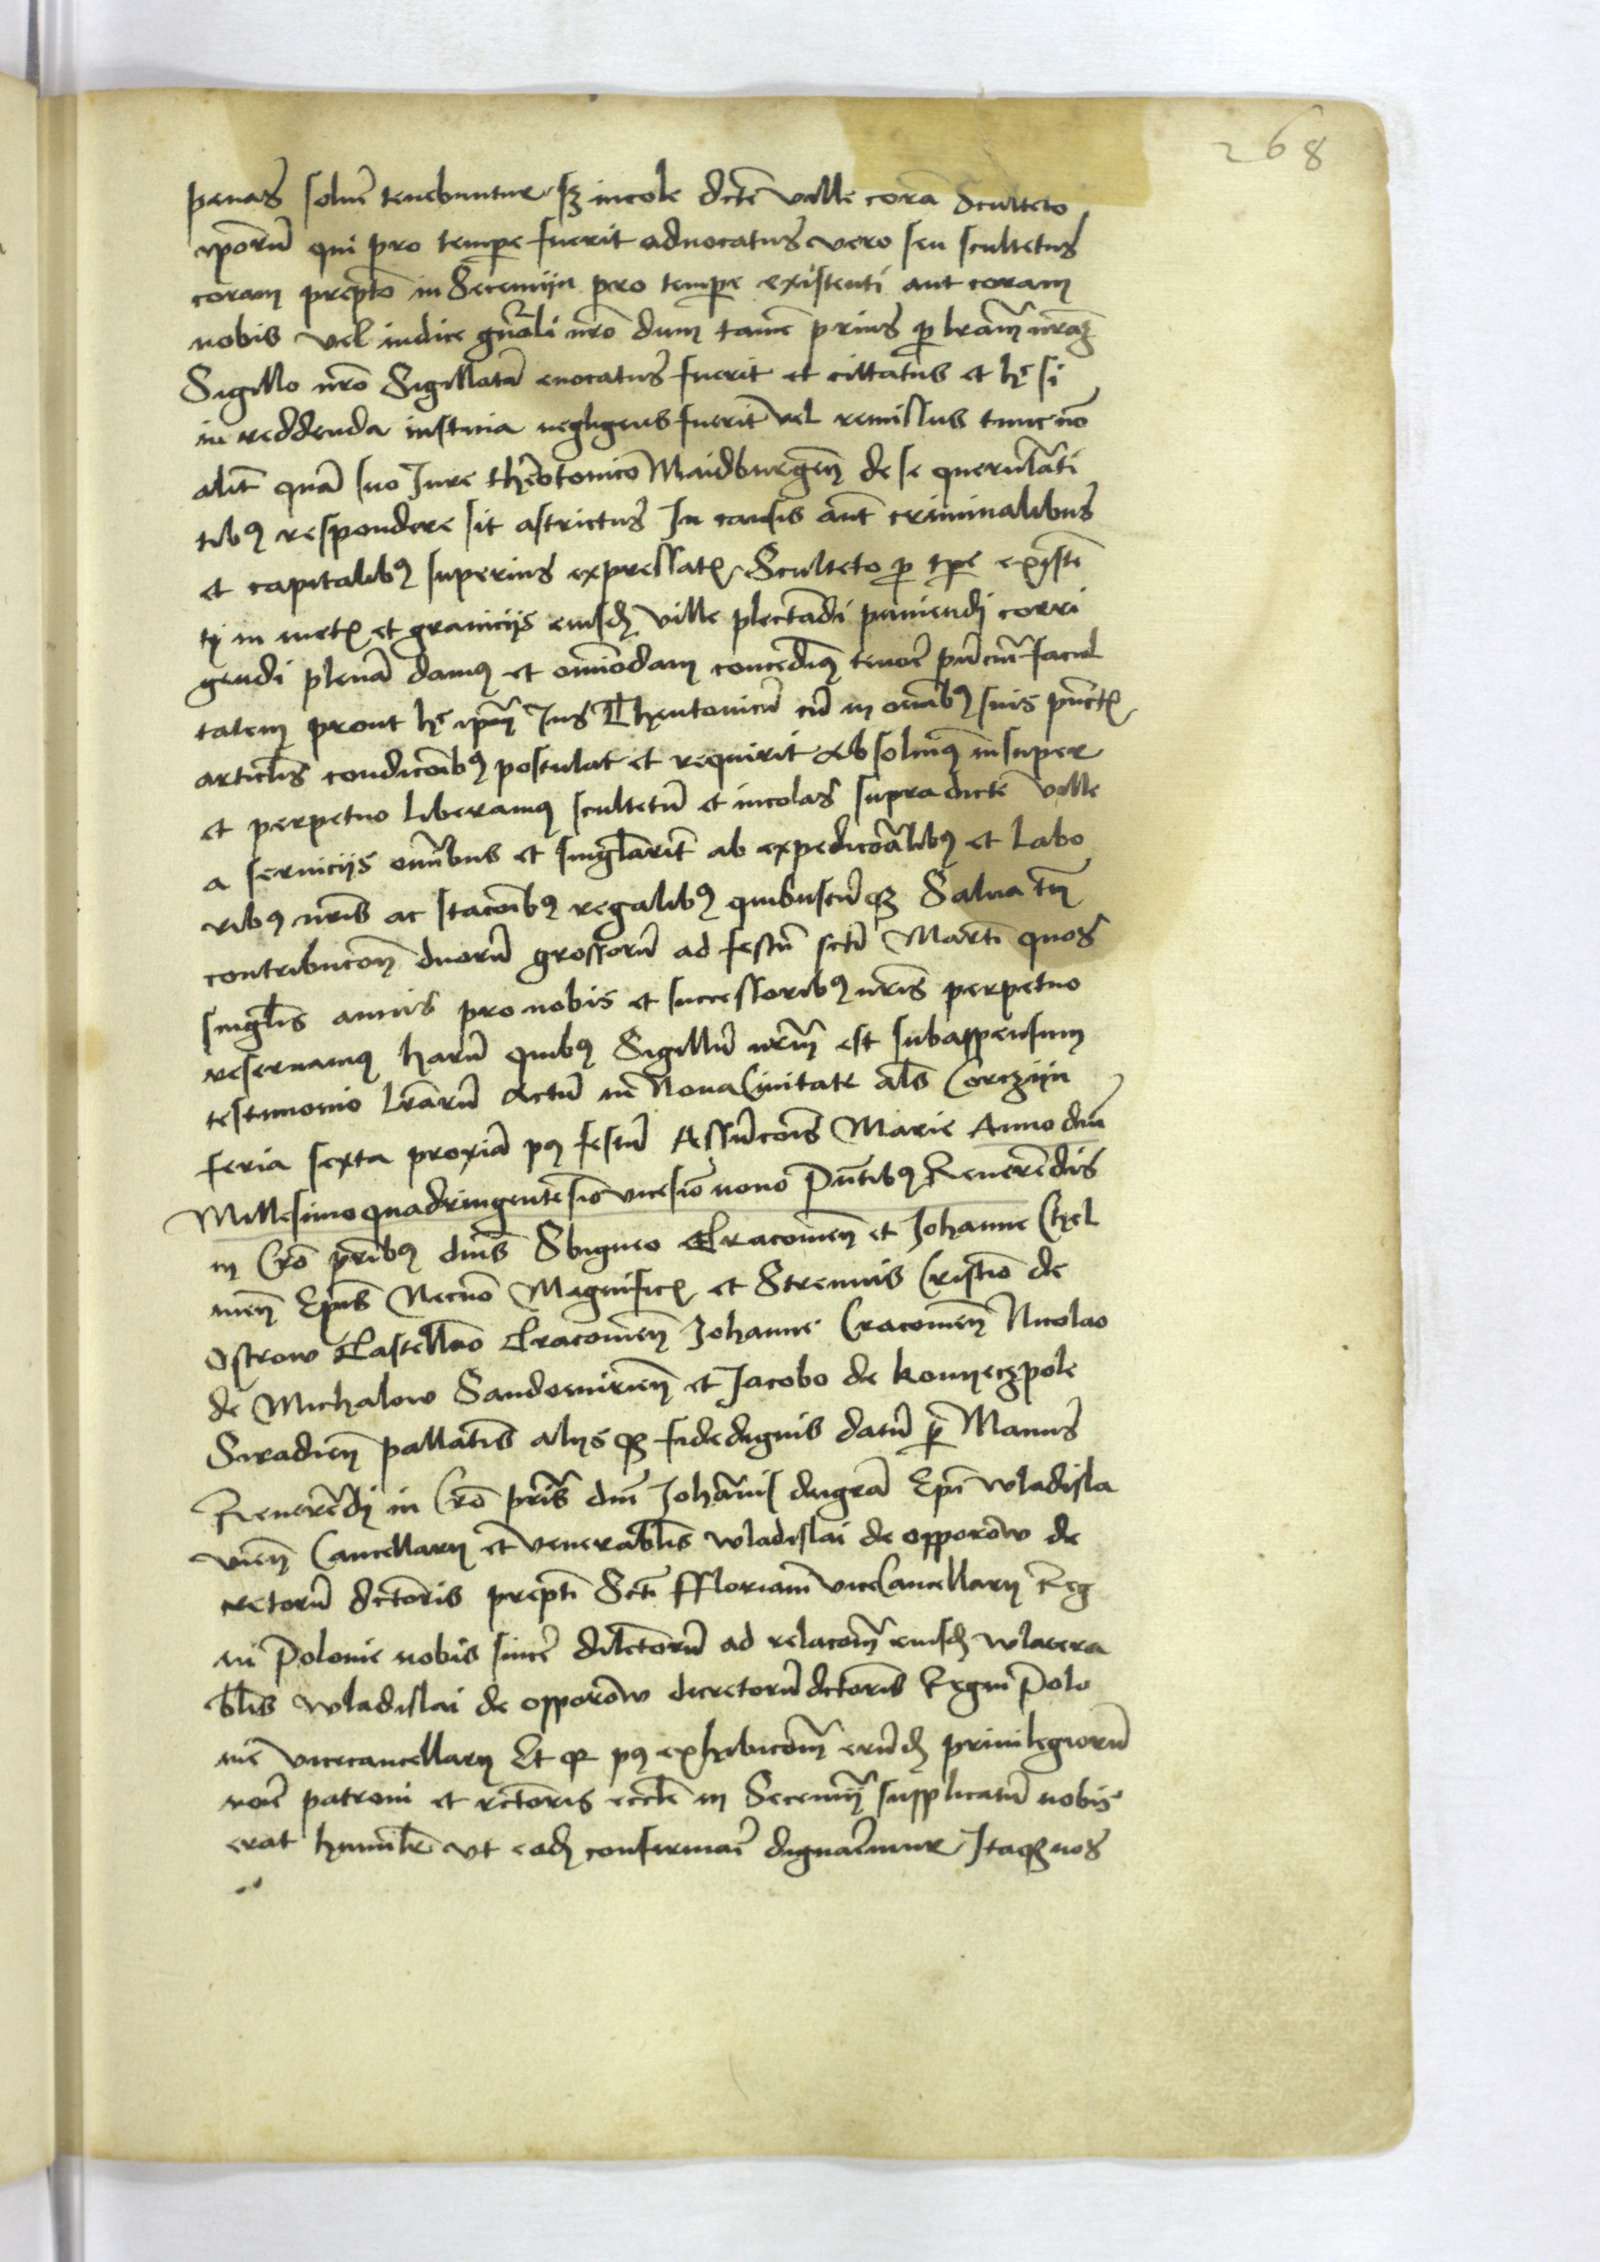 268
penas soluere tenebuntur sz incole dcte ville cora Sculteto
ipporu qui pro tempe fuerit aduocatus vero seu scultetus
coram prepto in Secemijn pro tempe existenti aut coram
nobis vel iudice gnali nro dum tame prius p lram nraz
Sigillo nro Sigillata euocatus fuerit et cittatus et hc si
in reddenda iusticia negligens fuerit vel remissus tunc no
alit qua suo Jure thewtonico Maidburgen de se querulati
tibus respondere sit astrictus In causis aut criminalibus
et capitalibus superius expressatis Sculteto p tpe existe
ti in metis et graniciis eiusd ville plectadi puniendi corri
gendi plena damus et omnioda concedimus tenore pncium facul
tatem prout hc ipm Jus Thewtonicu cu in omibus suis punctis
articlis condicoibus postulat et requirit Absoluimus insuper
et perpetuo liberamus scultetu et incolas supradicte ville
a seruiciis omibus et singlarit ab expedicoalibus et labo
ribus nris ac stacoibus regalibus quibuscuqz Salua tn
contribucoe duoru grossoru ad festu scti Marti quos
singlis annis pro nobis et successoribus nris perpetuo
reseruamus haru quibus Sigillu nrm est subappensum
testimonio lraru Actu in Noua Ciuitate als Corczijn
feria sexta proxia pus festu Assucois Marie Anno dni
Millesimo quadringentesio vicesio nono Pntibus Reuerendis
in Cro pribus dnis Sbigneo Cracouien et Johanne Chel
men Epis Necno Magnificis et Strenuis Cristio de
Ostrow Castellao Cracouien Johanne Cracouien Nicolao
de Michalow Sandomirien et Jacobo de konyeczpole
Siradien pallatis alijs qz fidedignis datu p Manus
Reueredi in Cro pris dni Johanis dei gra Epi wladisla
uien Cancellarij et venerablis wladislai de opporow de
cretoru dctoris prepti Scti ffloriani viceCancellarij Reg
ni Polonie nobis sincere dilectoru ad relacoem eiusd venera
blis wladislai de opporow decretoru dctoris Regni Polo
nie vicecancellarij Et qr pus exhibicom erud priuilegioru
noie patroni et rctoris eccle in Secemij supplicatu nobis
erat humilr vt ead confirmare dignaremur Itaqz nos